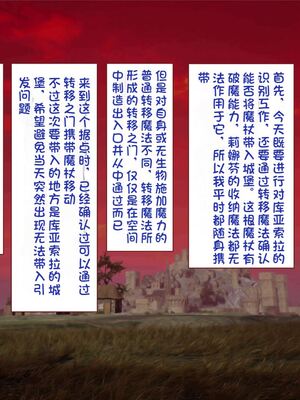 首先，今天既要进行对库亚索拉的
识别工作，还要通过转移魔法确认
能否将魔杖带入城堡。这根魔杖有
破魔能力，莉娜芬的收纳魔法都无
法作用于它，所以我平时都随身携
带
但是对自身或无生物施加魔力的
普通转移魔法不同，转移魔法所
形成的转移之门，仅仅是在空间
中制造出入口并从中通过而已
来到这个据点时，已经确认过可以通过
转移之门携带魔杖移动
不过这次要带入的地方是库亚索拉的城
堡，希望避免当天突然出现无法带入引
发问题